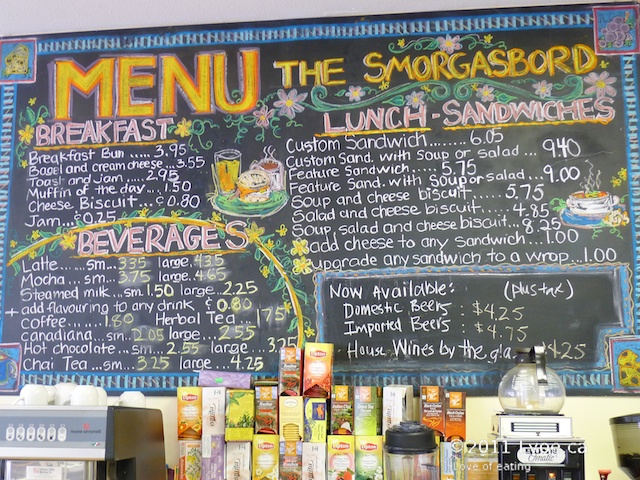 MENU
THE SMORGASBORD
BREAKFAST
Breakfast Bun ..... 3.95
Bagel and cream cheese ...3.55
Toast and Jam ..... 2.95
Muffin of the day ... 1.50
Cheese Biscuit ... ¢ 0.80
Jam ..¢ 0.25
BEVERAGES
Latte ...... sm... 3.35 large .4.35
Mocha .... sm... 3.75 large .4.65
Steamed milk ..sm. 1.50 large ...2.25
+ add flavouring to any drink ¢ 0.80
coffee ...... 1.80 Herbal Tea ... 1.75
canadiana... sm. 2.05 large ... 2.55
Hot chocolate ...sm ... 2.55 large ... 3.25
Chai Tea ....sm... 3.25 large ... 4.25
LUNCH - SANDWICHES
Custom Sandwich ........ 6.05
Custom Sand. with Soup or salad ... 9.40
Feature Sandwich ..... 5.75
Feature Sand. with Soup or salad ...9.00
Soup and cheese biscuit ...... 5.75
Salad and cheese biscuit ..... 4.85
Soup, salad and cheese biscuit ... 8.25
add cheese to any sandwich ...1.00
upgrade any sandwich to a wrop...1.00
Now Available: (plus tax)
Domestic Beers : $4.25
Imported Beers : $4.75
House Wines by the 4.25
Lipton
Lipton
Lipton
Lipton
Lipton
Lipton
© 2011 Lyee.ca
Love of eating